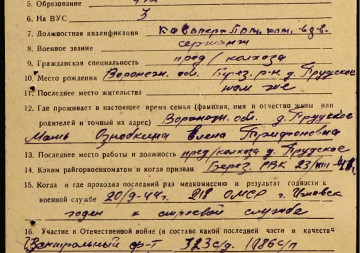 5. Образование
6. На ВУС 3
7. Должностная квалификация
8. Военное звание сержант
9. Гражданская специальность пред/колхоза
10. Место рождения Воронеж. обл. Берез. р-н д. Прудское
11. Последнее место жительства там же
12. Где проживает в настоящее время семья (фамилия, имя и отчество жены или
родителей и точный их адрес) Воронеж. обл. д. Прудское
Мать Ознобкина Елена
13. Последнее место работы и должность пред/колхоза д. Прудское
14. Каким райгорвоенкоматом и когда призван Берез. РВК 23/VIII-41г.
15. Когда и где проходил последний раз медкомиссию и результат годности к
военной службе 20/9-44г. 218 г. Ижевск
годен к строевой службе
16. Участие в Отечественной войне (в составе какой последней части в качестве
Центральный ф-т с/д. 1086 с/п